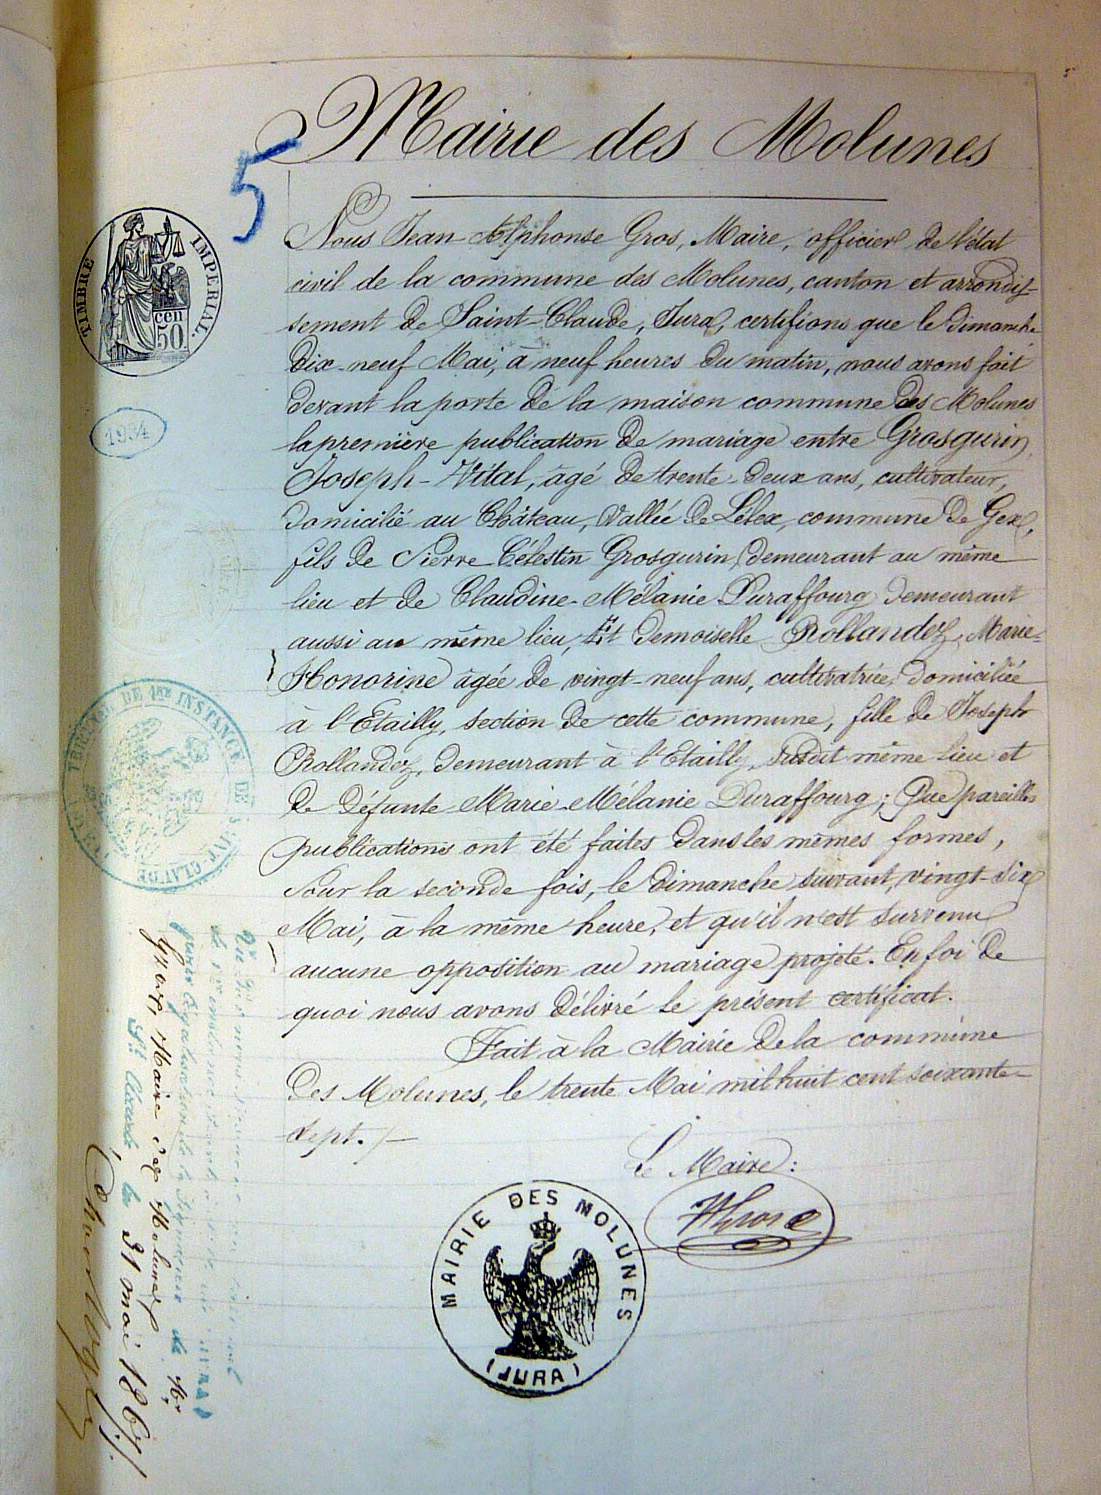 Mairie des Molunes
5
TIMBRE IMPERIAL.
50 cen
1934
Nous Jean-Alphonse Gros, Maire, officier de l'état
civil de la commune des Molunes, canton et arrondis-
sement de Saint-Claude, Jura, certifions que le dimanche
dix-neuf Mai, à neuf heures du matin, nous avons fait
devant la porte de la maison commune des Molunes
la première publication de mariage entre Grosgurin
Joseph-Vital, âgé de trente-deux ans, cultivateur,
domicilié au Château, Vallée de Lélex, commune de Gex,
fils de Pierre Célestin Grosgurin, demeurant au même
lieu et de Claudine-Mélanie Duraffourg demeurant
aussi au même lieu, Et demoiselle Rollandez, Marie-
Honorine âgée de vingt-neuf ans, cultivatrice, domiciliée
à l'Etailly, section de cette commune, fille de Joseph
Rollandez, demeurant à l'Etailly, susdit même lieu et
de défunte Marie-Mélanie Duraffourg; Que pareilles
publications ont été faites dans les mêmes formes,
Pour la seconde fois, le dimanche suivant, vingt-six
Mai, à la même heure, et qu'il n'est survenu
aucune opposition au mariage projeté. En foi de
quoi nous avons délivré le présent certificat.
Fait à la Mairie de la commune
des Molunes, le trente Mai mil huit cent soixante-
sept./
Le Maire:
AGros
MAIRIE DES MOLUNES
(JURA)
TRIBUNAL DE 1ERE INSTANCE DE ST-CLAUDE
la signature de Mr
Gros, Maire des Molunes
St Claude, le 31 mai 1867.